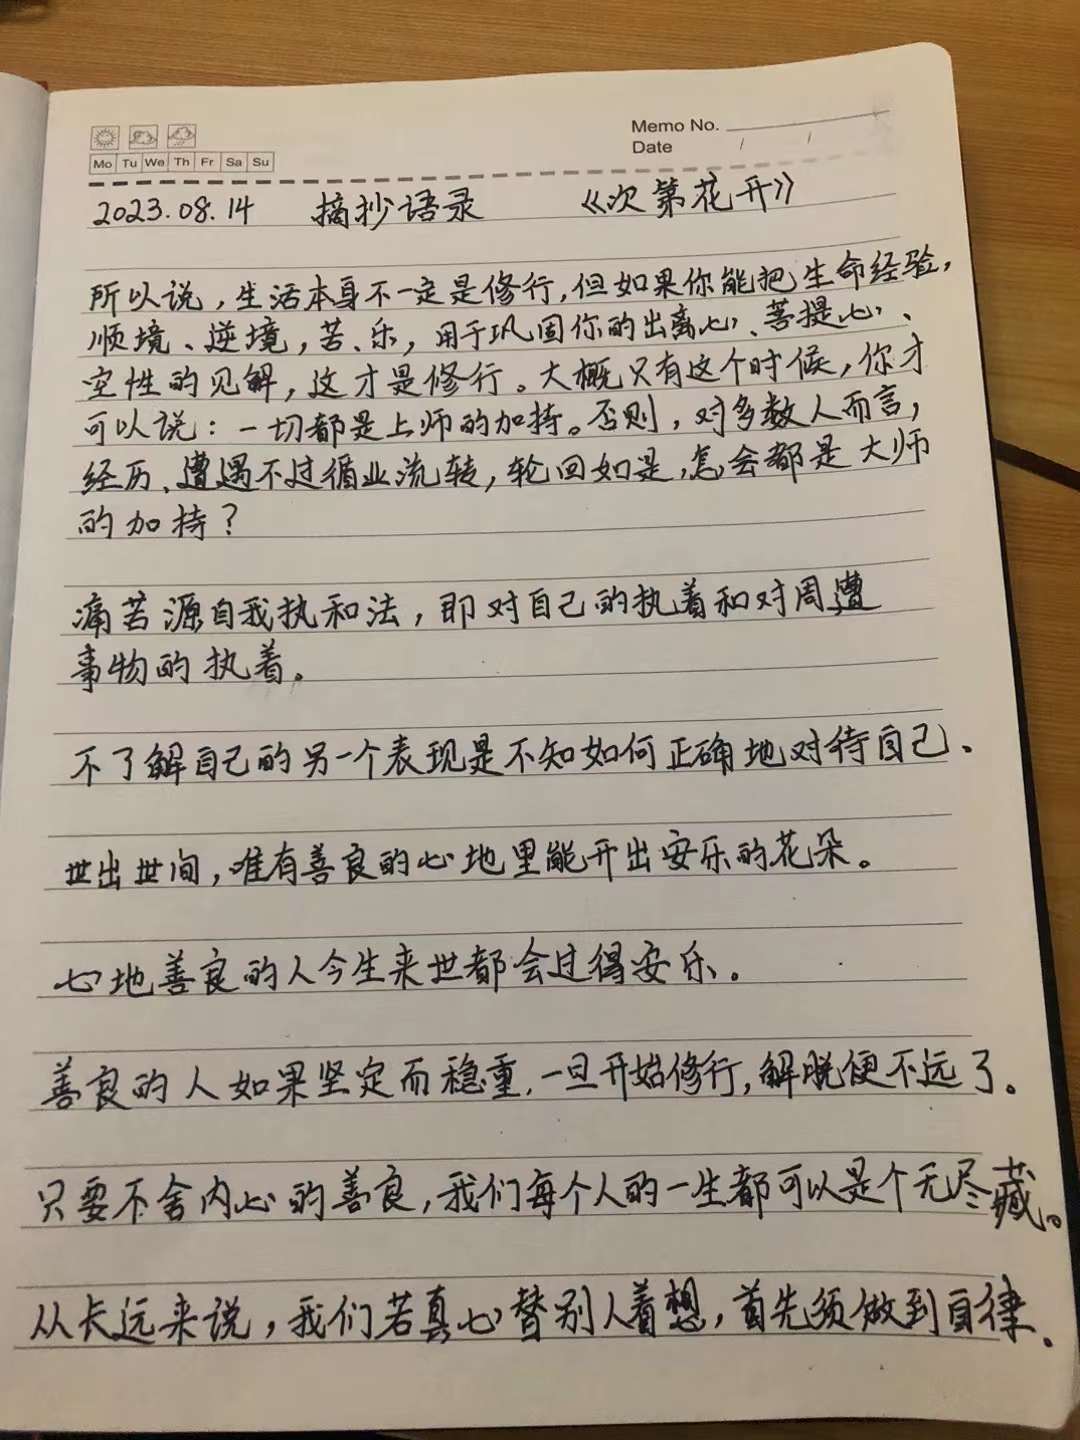 Memo No.
Mo Tu We Th Fr Sa Su
Date / /
2023.08.14 摘抄语录 《次第花开》
所以说，生活本身不一定是修行，但如果你能把生命经验，
顺境、逆境，苦、乐，用于巩固你的出离心、菩提心、
空性的见解，这才是修行。大概只有这个时候，你才
可以说：一切都是上师的加持。否则，对多数人而言，
经历、遭遇不过循业流转，轮回如是，怎会都是大师
的加持？
痛苦源自我执和法，即对自己的执着和对周遭
事物的执着。
不了解自己的另一个表现是不知如何正确地对待自己、
世出世间，唯有善良的心地里能开出安乐的花朵。
心地善良的人今生来世都会过得安乐。
善良的人如果坚定而稳重，一旦开始修行，解脱便不远了。
只要不舍内心的善良，我们每个人的一生都可以是个无尽藏。
从长远来说，我们若真心替别人着想，首先须做到自律、